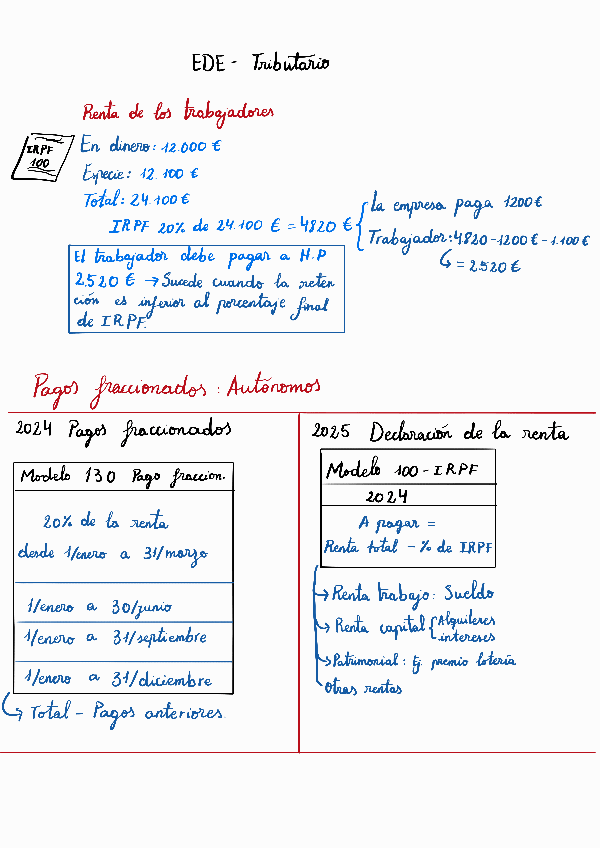 EDE - Tributario
Renta de los trabajadores
IRPF
100
En dinero: 12.000 €
Especie: 12.100 €
Total: 24.100 €
IRPF 20% de 24.100 € = 4820 €
la empresa paga 1200 €
Trabajador: 4820 - 1200 € - 1.100 €
= 2520 €
El trabajador debe pagar a H.P
2.520 € → Sucede cuando la reten
ción es inferior al porcentaje final
de IRPF.
Pagos fraccionados: Autónomos
2024 Pagos fraccionados
Modelo 130 Pago fraccion.
20% de la renta
desde 1/enero a 31/marzo
1/enero a 30/junio
1/enero a 31/septiembre
1/enero a 31/diciembre
Total - Pagos anteriores.
2025 Declaración de la renta
Modelo 100 - IRPF
2024
A pagar =
Renta total - % de IRPF
Renta trabajo: Sueldo
Renta capital { Alquileres
intereses
Patrimonial: Ej. premio lotería
Otras rentas